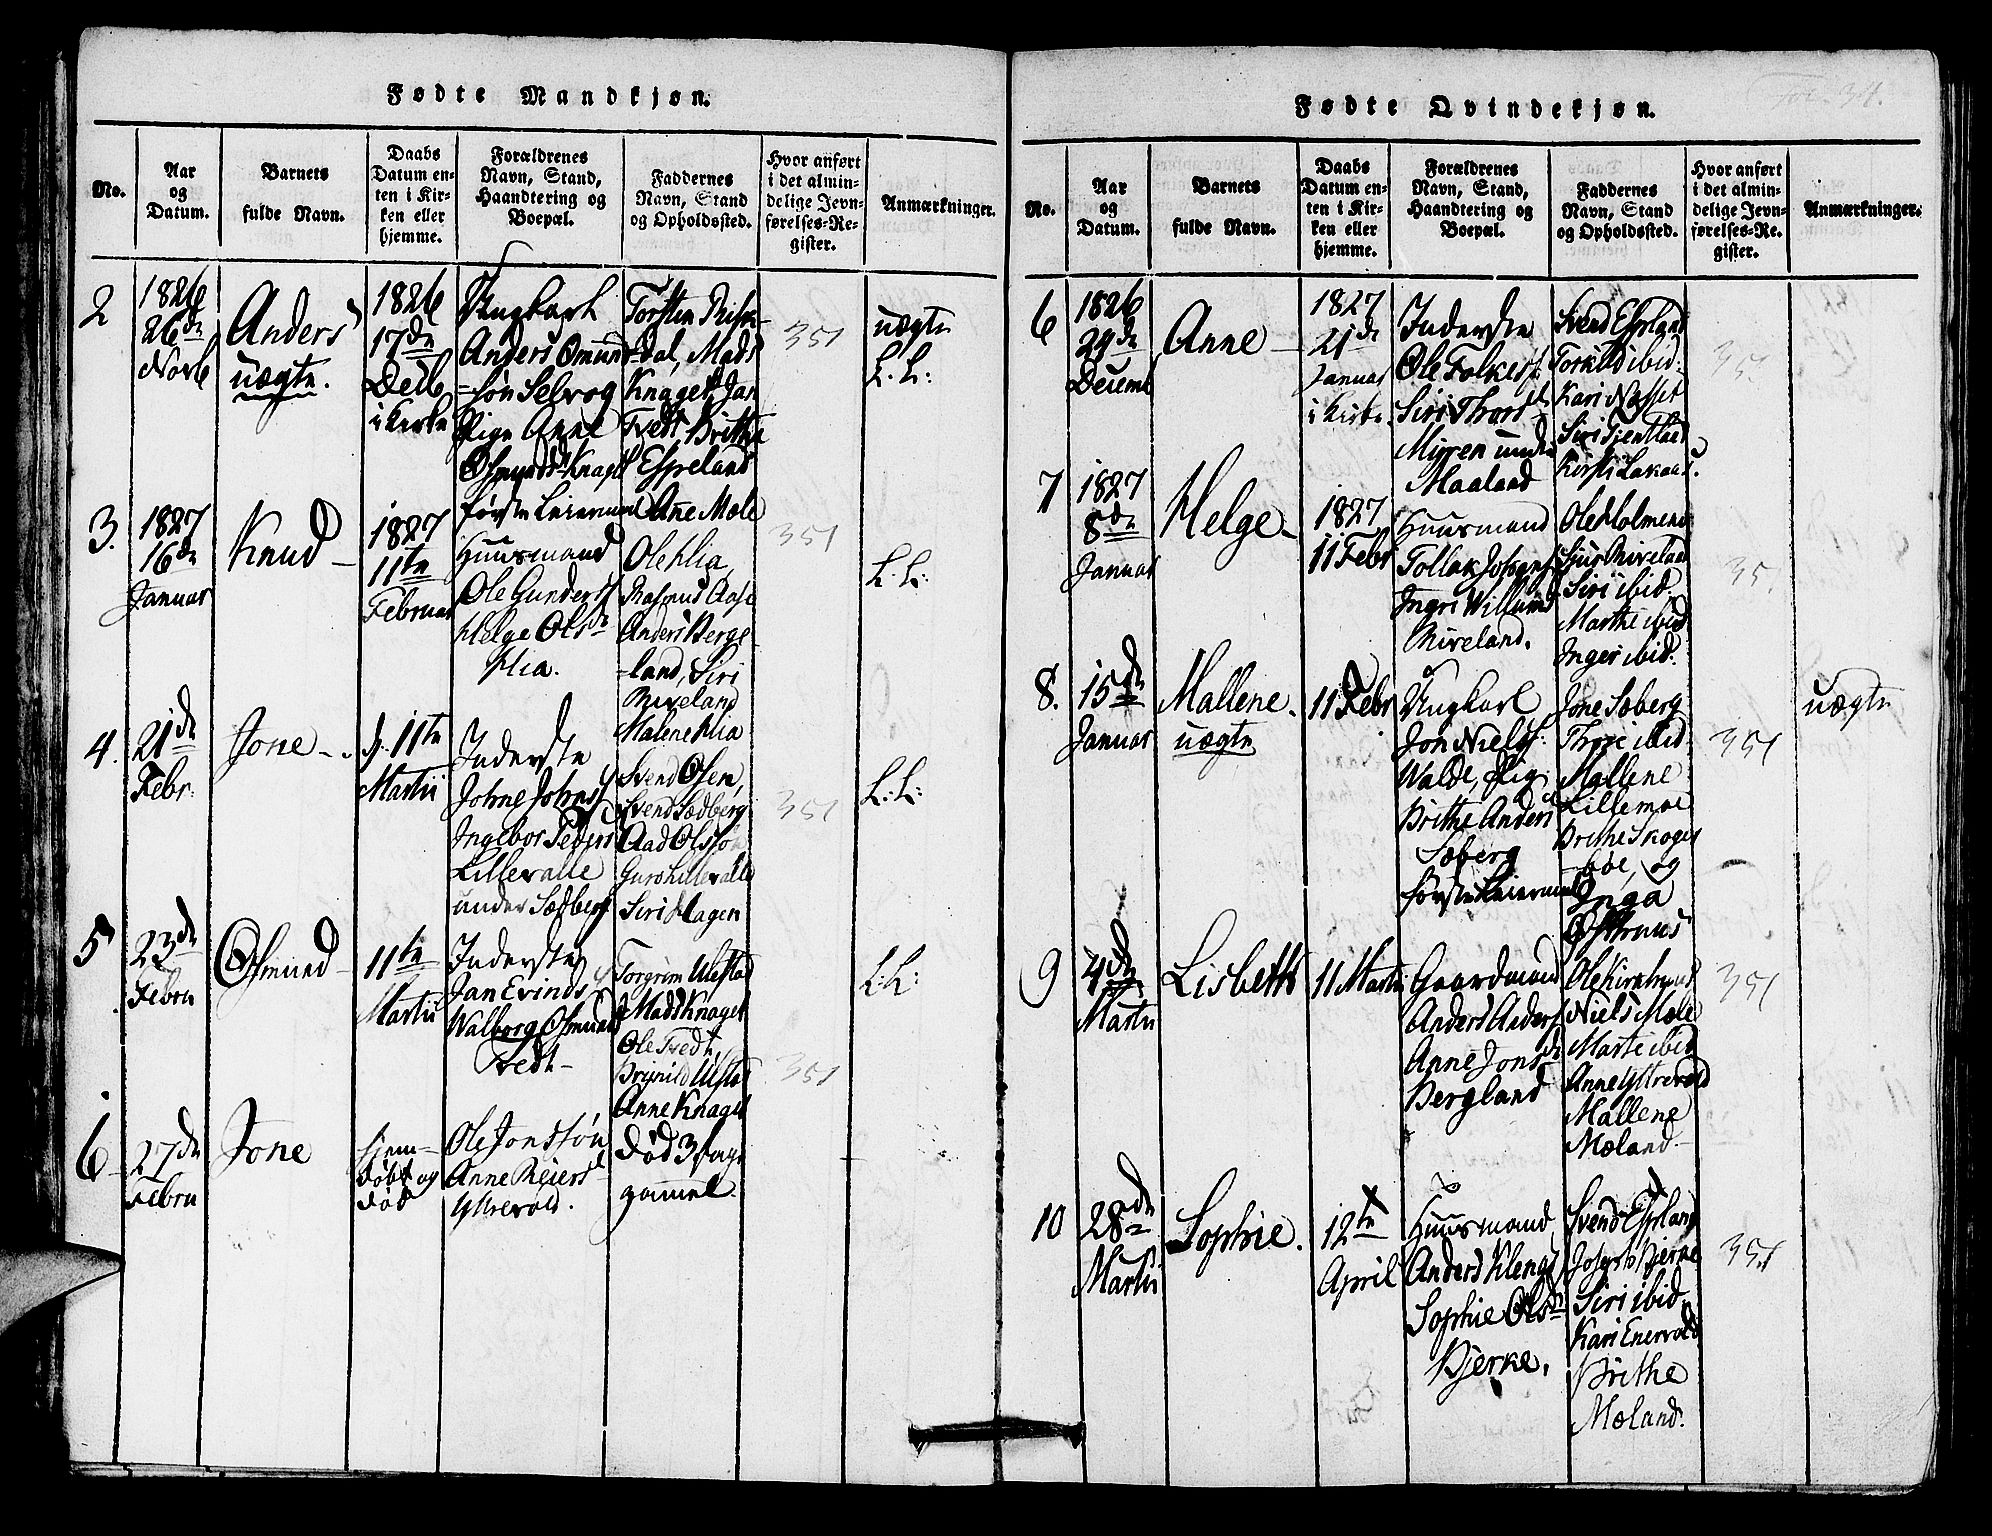 Fødte Mandkjøn.
No.
Aar
og
Datum.
Barnets
fulde Navn.
Daabs
Datum en-
ten i Kir-
ken eller
hjemme.
Forældrenes
Navn, Stand,
Haandtering og
Boepæl.
Faddernes
Navn, Stand
og Opholdssted.
Hvor anført
i det almin-
delige Jevn-
førelses-Re-
gister.
Anmærkninger.
2
1826
26de
Novb
Anders
uægte.
1826
17de
Decb
i Kirke
Ungkarl
Anders Omund
=søn Selvog
Pige Anne
Osmundsd Knaget
første Leiermaal
Torsten
dal, Mads
Knaget, Jan
Tvedt, Brithe
Espeland
Ane Mæle
351
uægte
L. L:
3.
1827
16de
Januar
Knud
1827
11te
Februar
Huusmand
Ole Gunders
Helge Olsd
Hlia.
Ole Hlia
Rasmus Aase
Anders Berge
=land, Siri
Mireland
Malene Hlia
351
L: L:
4.
21de
Febr:
Jone
d. 11te
Martii
Inderste
Johne Johns
Ingebor Peders
Lillevalle
under Sædberg
Svend Olsen,
Svend Sædberg
Aad Olssø
Guro Lillevalle
Siri Hagen
351
L: L:
5
23de
Febru
Osmund
11te
Martii
Inderste
Jan Evinds
Walborg Osmund
Tvedt
Torgrim Ulestad
Mads Knaget
Ole Tvedt,
Brynild Ulestad
Anne Knaget
351
L: L:
6
27de
Febru
Jone
hjem-
døbt og
død
Ole Jonssøn
Anne Reiers
Yttrevold.
død 3 Dage
gammel.
Fødte Qvindekjøn.
Fol. 34.
No.
Aar
og
Datum.
Barnets
fulde Navn.
Daabs
Datum en-
ten i Kir-
ken eller
hjemme.
Forældrenes
Navn, Stand,
Haandtering og
Boepæl.
Faddernes
Navn, Stand
og Opholdssted.
Hvor anført
i det almin-
delige Jevn-
førelses-Re-
gister.
Anmærkninger.
6
1826
29de
Decemb
Anne
1827
21de
Januar
i Kirke.
Inderste
Ole Folkes
Siri Thors
Myren under
Maaland
Svend Espeland
Torkild ibid.
Kari Næsset
Siri Tjentland
Kirsti Lakaas.
35
7
1827
8de
Januar
Helge
1827
11 Febr
Huusmand
Tollak Johans
Ingri Willumsd
Mireland.
Ole Holmene
Sjur Mireland
Siri ibid.
Marthe ibid
Inger ibid.
35
8.
15de
Januar
Mallene.
uægte
11 Febr
Ungkarl
Jon Niels
Walde, Pig
Brithe Anders
Sæberg
første Leiermaal
Jone Sæberg
Thore ibid.
Mallene
Lillemoe
Brithe Skoger
=bøe, og
Inga
Østhuus
351
uægte
9
4de
Martii
Lisbeth
11 Martii
Gaardmand
Anders Anders
Anne Jons
Bergland
Ole Kirkhuus
Niels Mæle
Marte ibid
Anne Yttrevold
Mallene
Mæland
351
10
28de
Martii
Sophie.
12te
April
Huusmand
Anders Klengs
Sophie Olsd
Bjerke.
Svend Espeland
Joseph Bjerke
Siri ibid
Kari Enervold
Brithe
Mæland.
351